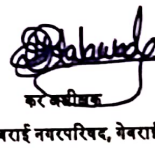 कर अधीक्षक
बराई नगरपरिषद, गेवराई